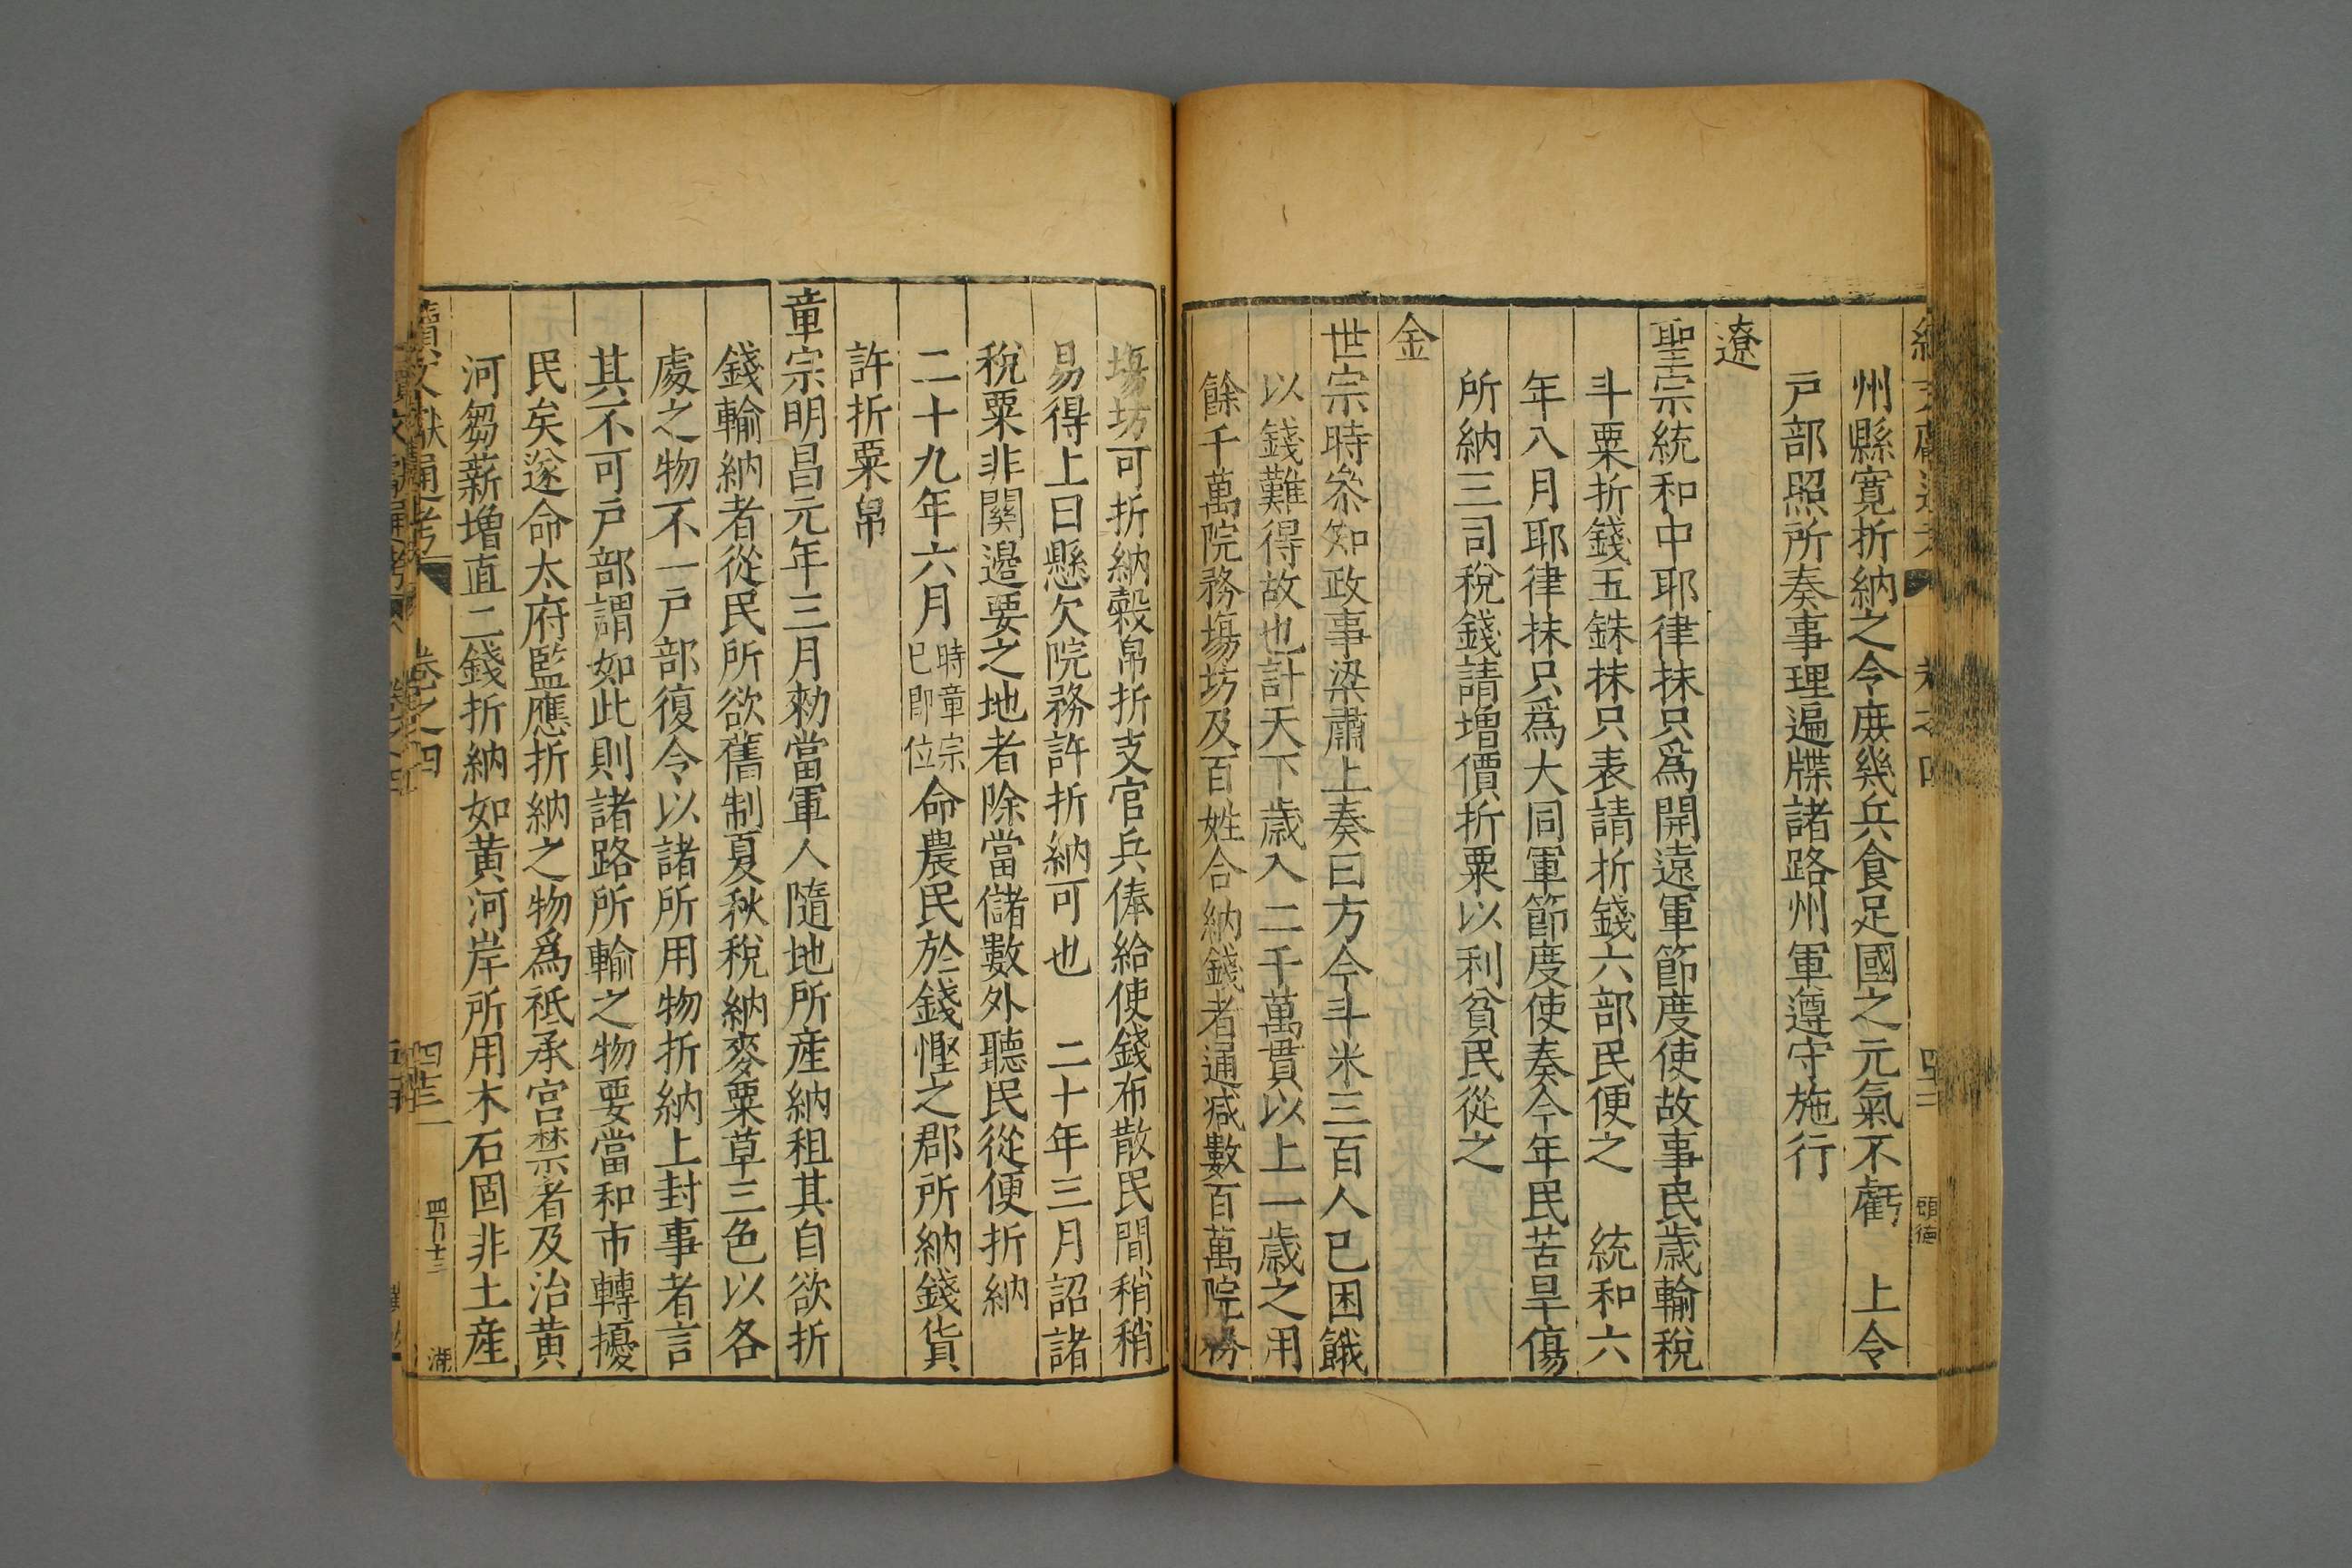 州縣寬折納之令庶幾兵食足國之元氣不虧　上令
戸部照所奏事理遍牒諸路州軍遵守施行
遼
聖宗統和中耶律抹只爲開遠軍節度使故事民歲輸稅
斗粟折錢五銖抹只表請折錢六部民便之　統和六
年八月耶律抹只爲大同軍節度使奏今年民苦旱傷
所納三司稅錢請增價折粟以利貧民從之
金
世宗時叅知政事梁肅上奏曰方今斗米三百人已困餓
以錢難得故也計天下歲入二千萬貫以上一歲之用
餘千萬院務塲坊及百姓合納錢者通减數百萬院務
塲坊可折納榖帛折支官兵俸給使錢布散民間稍稍
易得上曰懸欠院務許折納可也　二十年三月詔諸
稅粟非關邊要之地者除當儲數外聽民從便折納
二十九年六月時章宗已即位命農民於錢慳之郡所納錢貨
許折粟帛
章宗明昌元年三月勑當軍人隨地所産納租其自欲折
錢輸納者從民所欲舊制夏秋稅納麥粟草三色以各
處之物不一戸部復令以諸所用物折納上封事者言
其不可戸部謂如此則諸路所輸之物要當和市轉擾
民矣遂命太府監應折納之物爲祗承宫禁者及治黄
河芻薪增直二錢折納如黄河岸所用木石固非土産
續文獻通考　卷之四